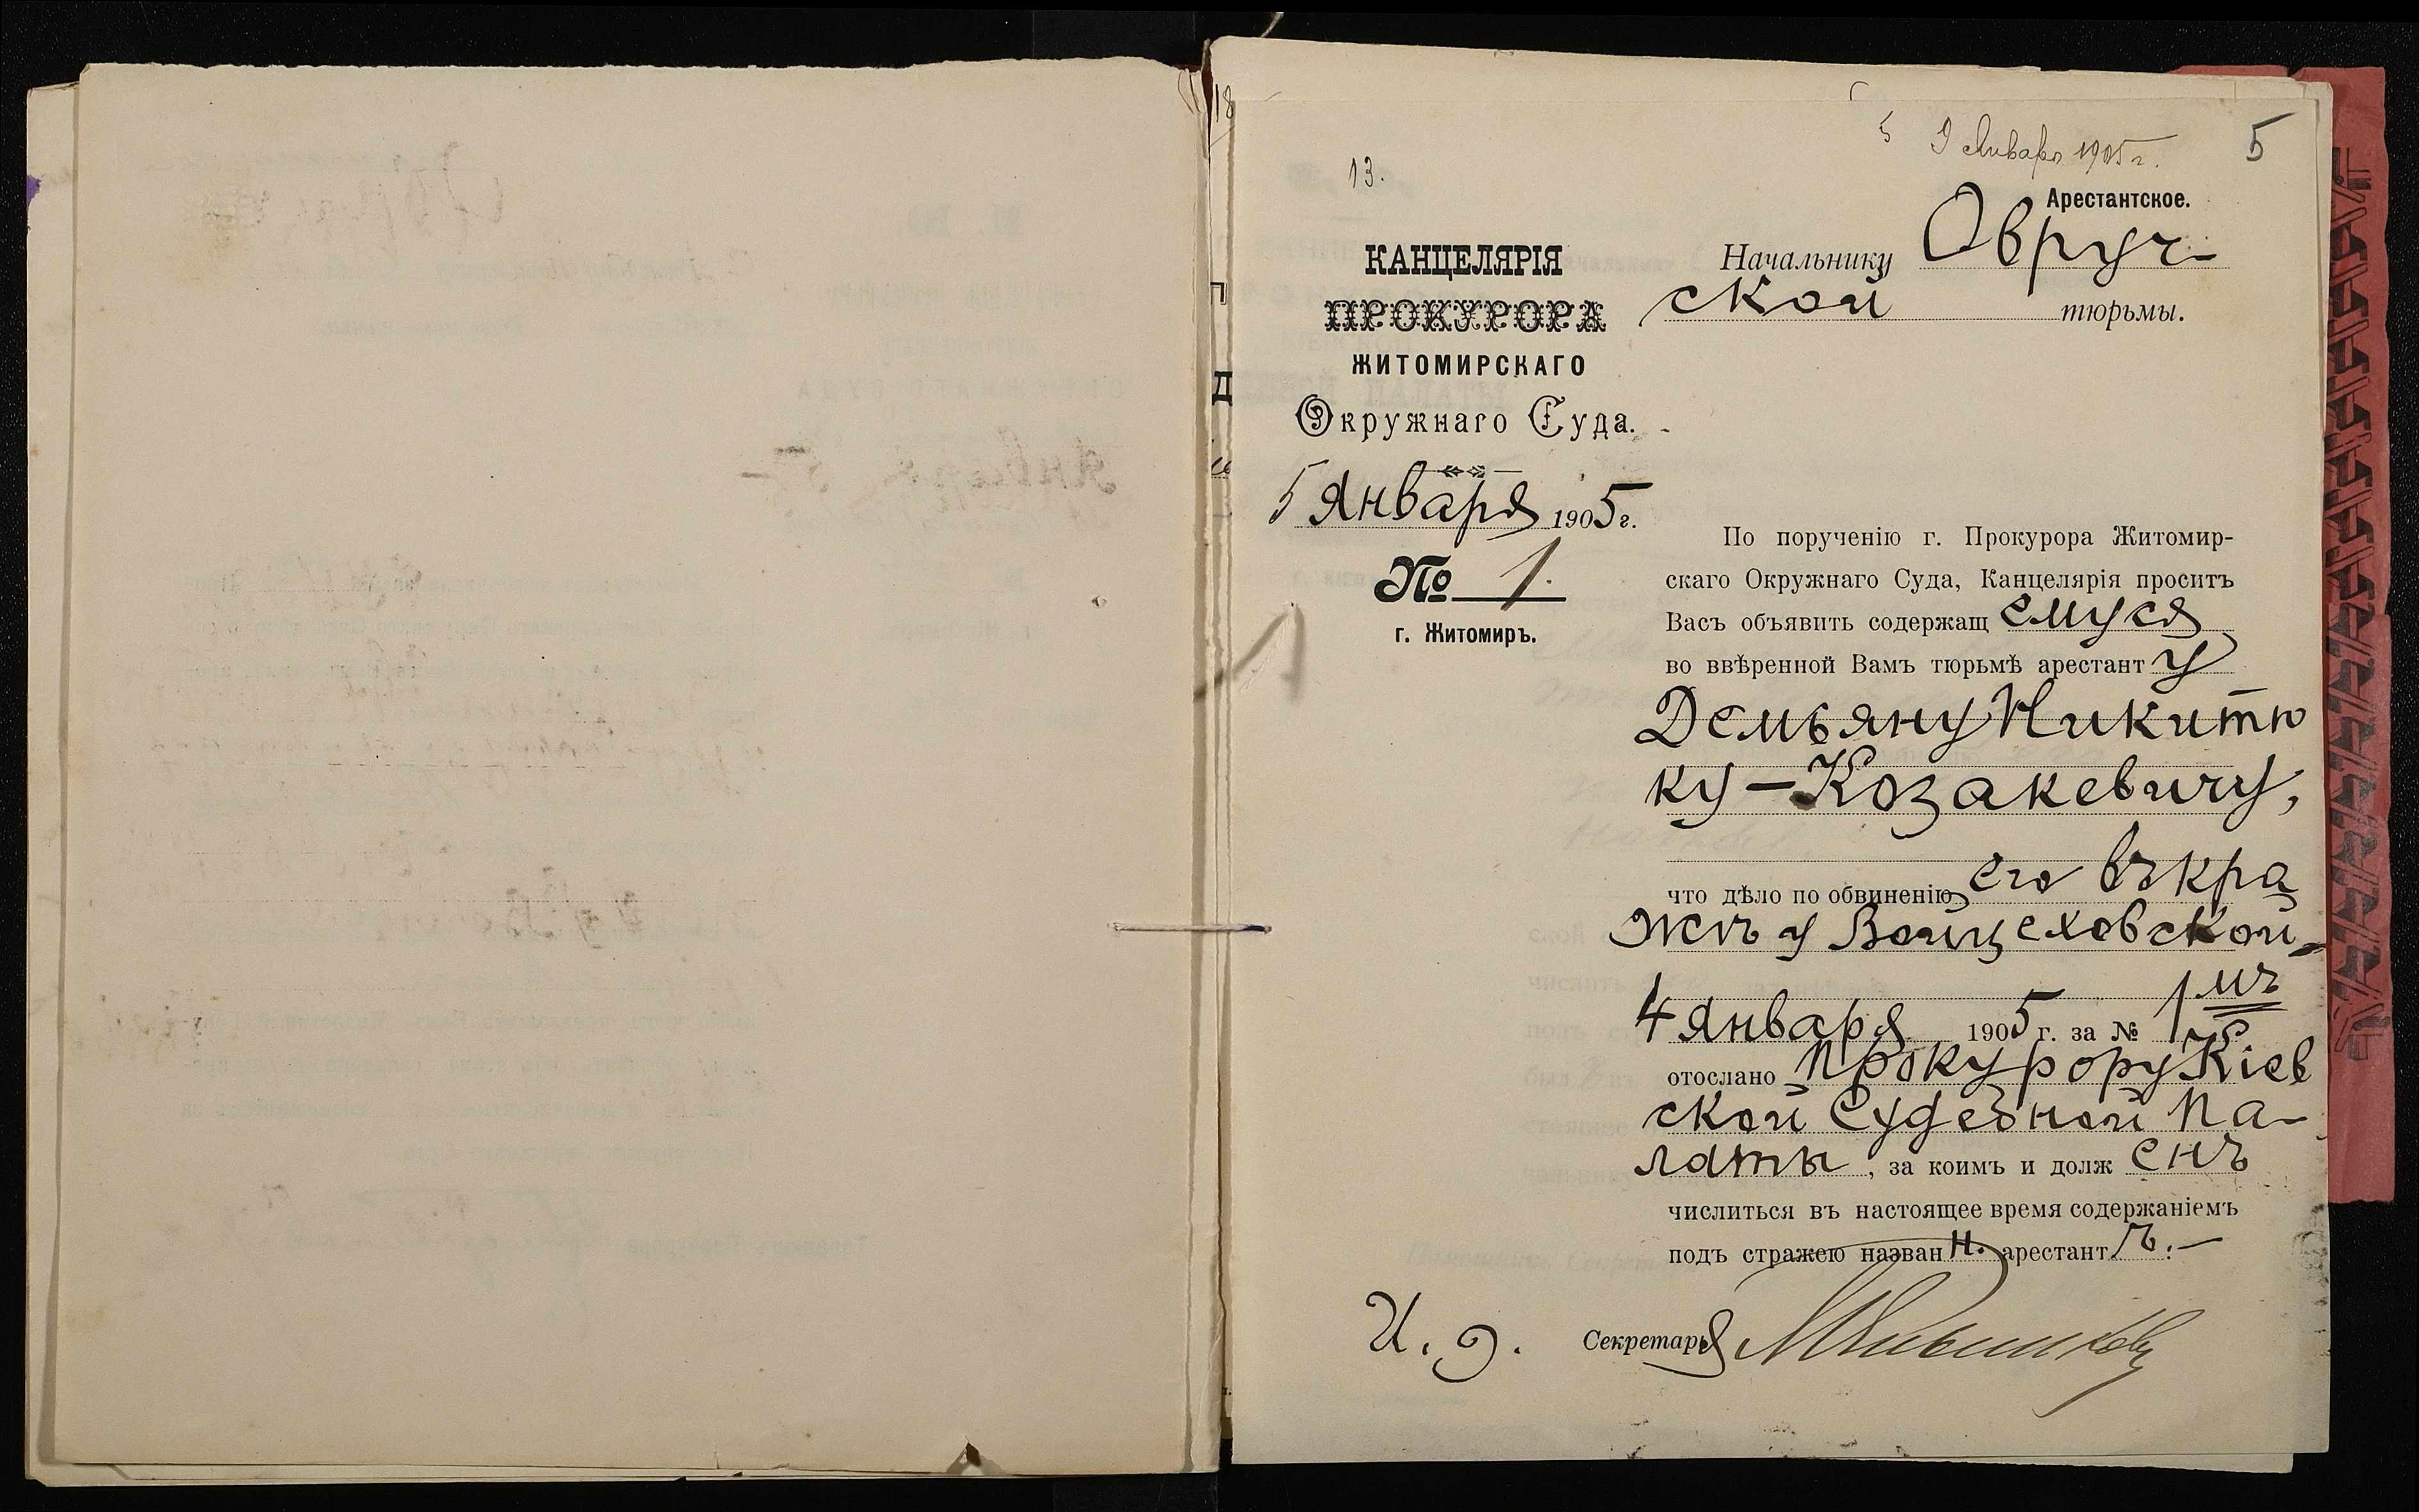 13.
5 9 Января 1905 г.
5
Арестантское.
КАНЦЕЛЯРІЯ
ПРОКУРОРА
ЖИТОМИРСКАГО
Окружнаго Суда.
5 Января 1905 г.
№ 1.
г. Житомиръ.
Начальнику Овруч-
ской тюрьмы.
По порученію г. Прокурора Житомир-
скаго Окружнаго Суда, Канцелярія проситъ
Васъ объявить содержащемуся
во ввѣренной Вамъ тюрьмѣ арестанту
Демьяну Никитю
ку-Козакевичу,
что дѣло по обвиненію его въ кра
жѣ у Войцеховской
4 Января 1905 г. за № 1
отослано Прокурору Кіев
ской Судебной Па-
латы, за коимъ и долженъ
числиться въ настоящее время содержаніемъ
подъ стражею назван н. арестантъ.
И. д. Секретаря